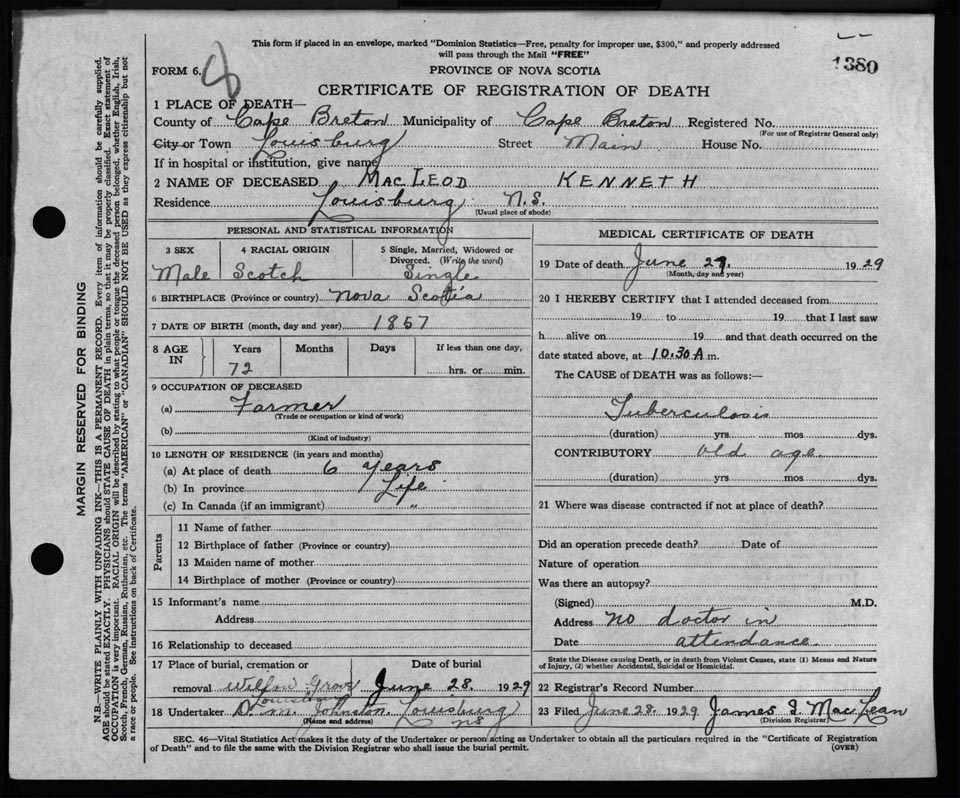 This form if placed in an envelope, marked "Dominion Statistics—Free, penalty for improper use, $300," and properly addressed
will pass through the Mail "FREE"
1380
FORM 6.
8
PROVINCE OF NOVA SCOTIA
CERTIFICATE OF REGISTRATION OF DEATH
1 PLACE OF DEATH—
County of Cape Breton Municipality of Cape Breton Registered No.
(For use of Registrar General only)
City or Town Louisburg Street Main House No.
If in hospital or institution, give name
2 NAME OF DECEASED MacLEOD KENNETH
Residence Louisburg N.S.
(Usual place of abode)
PERSONAL AND STATISTICAL INFORMATION
3 SEX 4 RACIAL ORIGIN 5 Single, Married, Widowed or
Divorced. (Write the word)
Male Scotch Single
6 BIRTHPLACE (Province or country) Nova Scotia
7 DATE OF BIRTH (month, day and year) 1857
8 AGE IN Years Months Days If less than one day,
72 hrs. or min.
9 OCCUPATION OF DECEASED
(a) Farmer
(Trade or occupation or kind of work)
(b)
(Kind of industry)
10 LENGTH OF RESIDENCE (in years and months)
(a) At place of death 6 years
(b) In province Life
(c) In Canada (if an immigrant) "
Parents
11 Name of father
12 Birthplace of father (Province or country)
13 Maiden name of mother
14 Birthplace of mother (Province or country)
15 Informant's name
Address
16 Relationship to deceased
17 Place of burial, cremation or Date of burial
removal Willow Grove June 28. 1929
Louisburg
18 Undertaker D. M. Johnston, Louisburg
(Name and address) NS
MEDICAL CERTIFICATE OF DEATH
19 Date of death June 27. 1929
(Month, day and year)
20 I HEREBY CERTIFY that I attended deceased from
19 to 19 that I last saw
h alive on 19 and that death occurred on the
date stated above, at 10.30 A m.
The CAUSE of DEATH was as follows:—
Tuberculosis
(duration) yrs mos dys.
CONTRIBUTORY old age
(duration) yrs mos dys.
21 Where was disease contracted if not at place of death?
Did an operation precede death? Date of
Nature of operation
Was there an autopsy?
(Signed) M.D.
Address no doctor in
Date attendance
State the Disease causing Death, or in death from Violent Causes, state (1) Means and Nature
of Injury, (2) whether Accidental, Suicidal or Homicidal.
22 Registrar's Record Number
23 Filed June 28. 1929 James I. MacLean
(Division Registrar)
SEC. 46—Vital Statistics Act makes it the duty of the Undertaker or person acting as Undertaker to obtain all the particulars required in the "Certificate of Registration
of Death" and to file the same with the Division Registrar who shall issue the burial permit. (OVER)
MARGIN RESERVED FOR BINDING
N.B.—WRITE PLAINLY WITH UNFADING INK—THIS IS A PERMANENT RECORD. Every item of information should be carefully supplied.
AGE should be stated EXACTLY. PHYSICIANS should STATE CAUSE OF DEATH in plain terms, so that it may be properly classified. Exact statement of
OCCUPATION is very important. RACIAL ORIGIN will be described by stating to what people or tongue the deceased person belonged, whether English, Irish,
Scotch, French, German, Russian, Ruthenian, etc. The terms "AMERICAN" or "CANADIAN" SHOULD NOT BE USED as they express citizenship but not
a race or people. See instructions on back of Certificate.